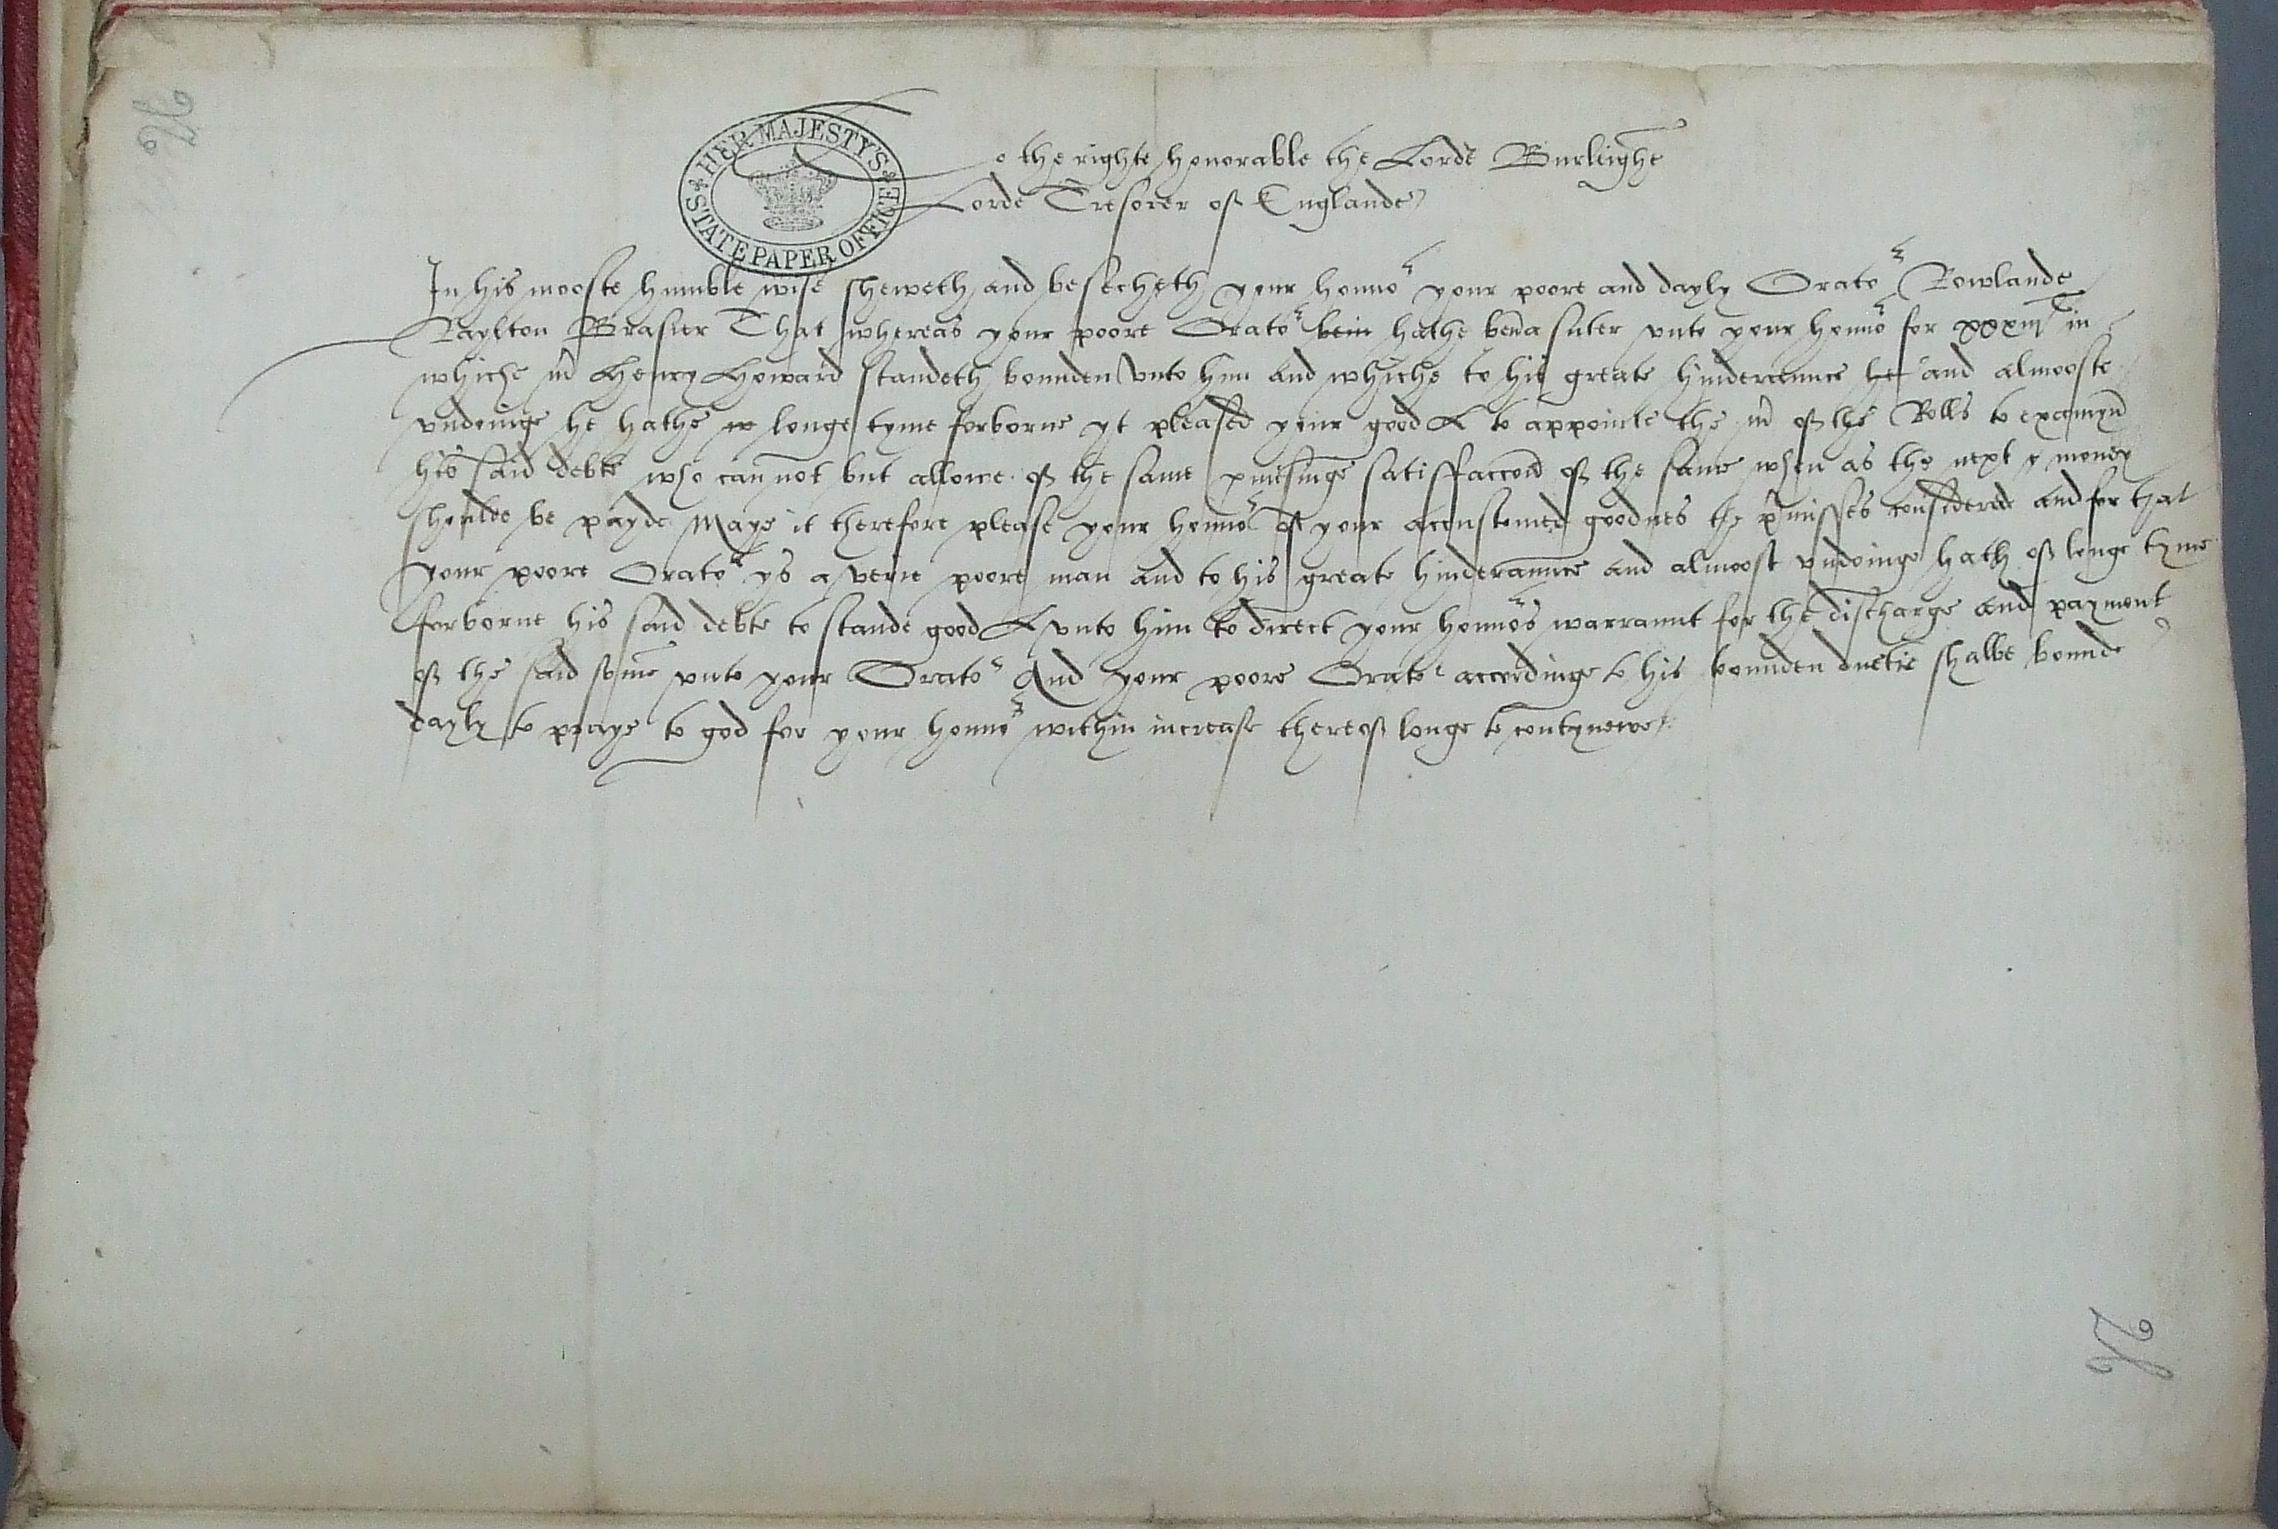 To the righte honorable the Lorde Burleighe
Lorde Tresorer of Englande
HER MAJESTY'S STATE PAPER OFFICE
In his mooste humble wise sheweth and besecheth your honnor your poore and dayly Orator Rowlande
Raylton Brasier That whereas your poore Orator bein hathe bena suter unto your honnor for xxxiiili in
whiche mr Henry Howard standeth bounden unto him and whiche to his greate hinderaunce he and almooste
undoinge he hathe longe tyme forborne yt pleased your good L to appointe the mr of the Rolls to examyn
his said debte who can not but allowe of the same promisinge satisffaccon of the same when as the next money
shoulde be payde Maye it therefore please your honnor of your accustomed goodnes the premisses considered and for that
your poore Orator ys a verie poore man and to his greate hinderaunce and almoost undoinge hath of longe tyme
forborne his said debte to stande good L unto him to direct your honnors warraunt for the discharge and payment
of the said some unto your Orator And your poore Orator accordinge to his bounden duetie shalbe bounde
dayly to praye to god for your honnor within increase thereof longe to contynewe